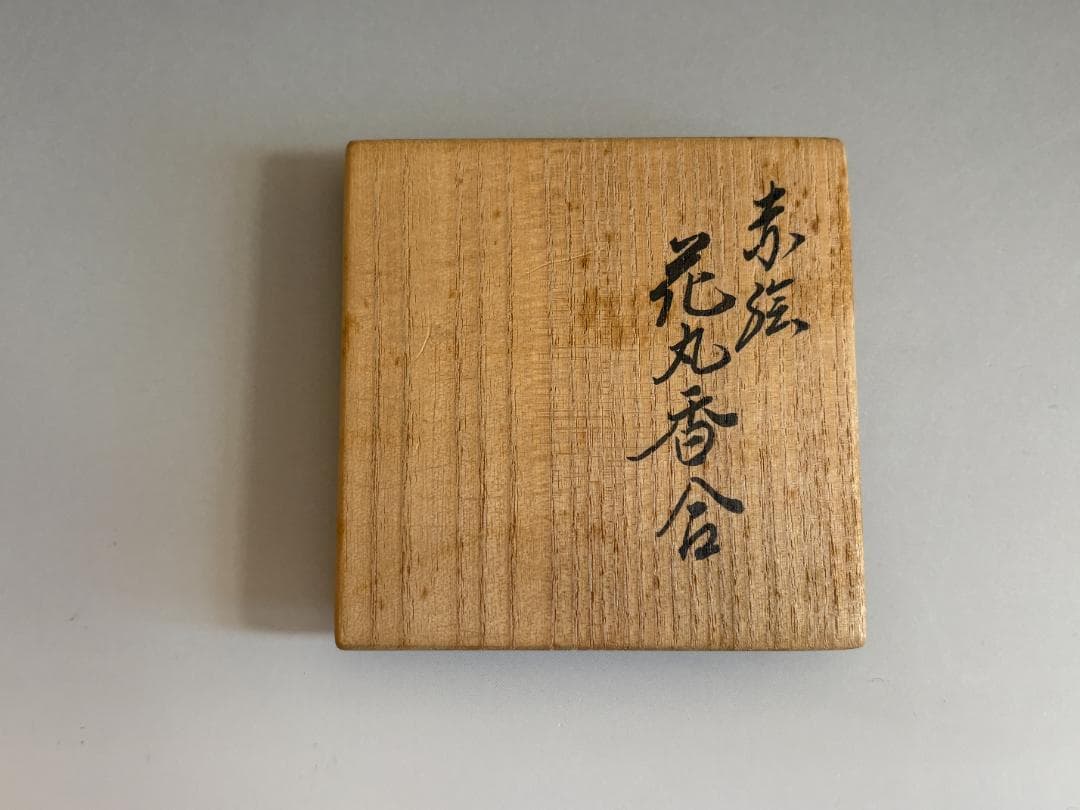 赤絵
花丸香合